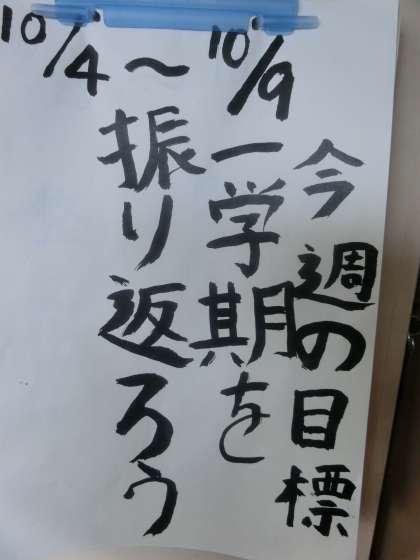 今週の目標
一学期を
振り返ろう
10/4～10/9